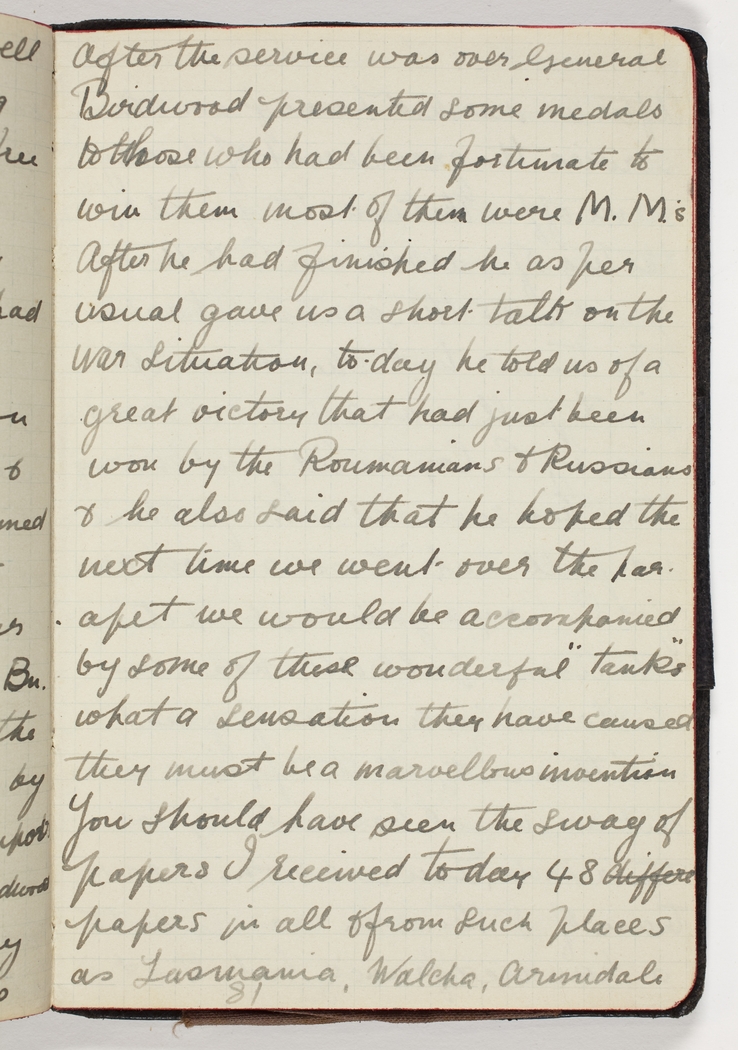 After the service was over General
Birdwood presented some medals
to those who had been fortunate to
win them most of them were M. M.s
After he had finished he as per
usual gave us a short talk on the
war situation, to-day he told us of a
great victory that had just been
won by the Roumanians & Russians
& he also said that he hoped the
next time we went over the par-
apet we would be accompanied
by some of these wonderful "tanks"
what a sensation they have caused
they must be a marvellous invention
You should have seen the swag of
papers I received today 48 differe
papers in all & from such places
as Tasmania, Walcha, Armidale
81
ell
had
on
&
med
Bn.
the
by